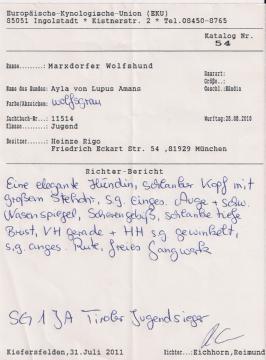 Europäische-Kynologische-Union (EKU)
85051 Ingolstadt * Kistnerstr. 2 * Tel.08450-8765
Katalog Nr.
54
Rasse.........: Marxdorfer Wolfshund
Haarart:
Größe..:
Name des Hundes: Ayla von Lupus Amans
Geschl.:Hündin
Farbe/Abzeichen: wolfsgrau
Zuchtbuch-Nr...: 11514
Wurftag:28.08.2010
Klasse........: Jugend
Besitzer.......: Heinze Rigo
Friedrich Eckart Str. 54 ,81929 München
Richter-Bericht
Eine elegante Hündin, schlanker Kopf mit
großem Stehohr, s.g. einges. Auge + schw.
Nasenspiegel, Scherengebiß, schlanke tiefe
Brust, VH gerade + HH s.g. gewinkelt,
s.g. anges. Rute, freies Gangwerk
SG 1 JA Tiroler Jugendsieger
Kiefersfelden, 31.Juli 2011
Richter...: Eichhorn, Reimund